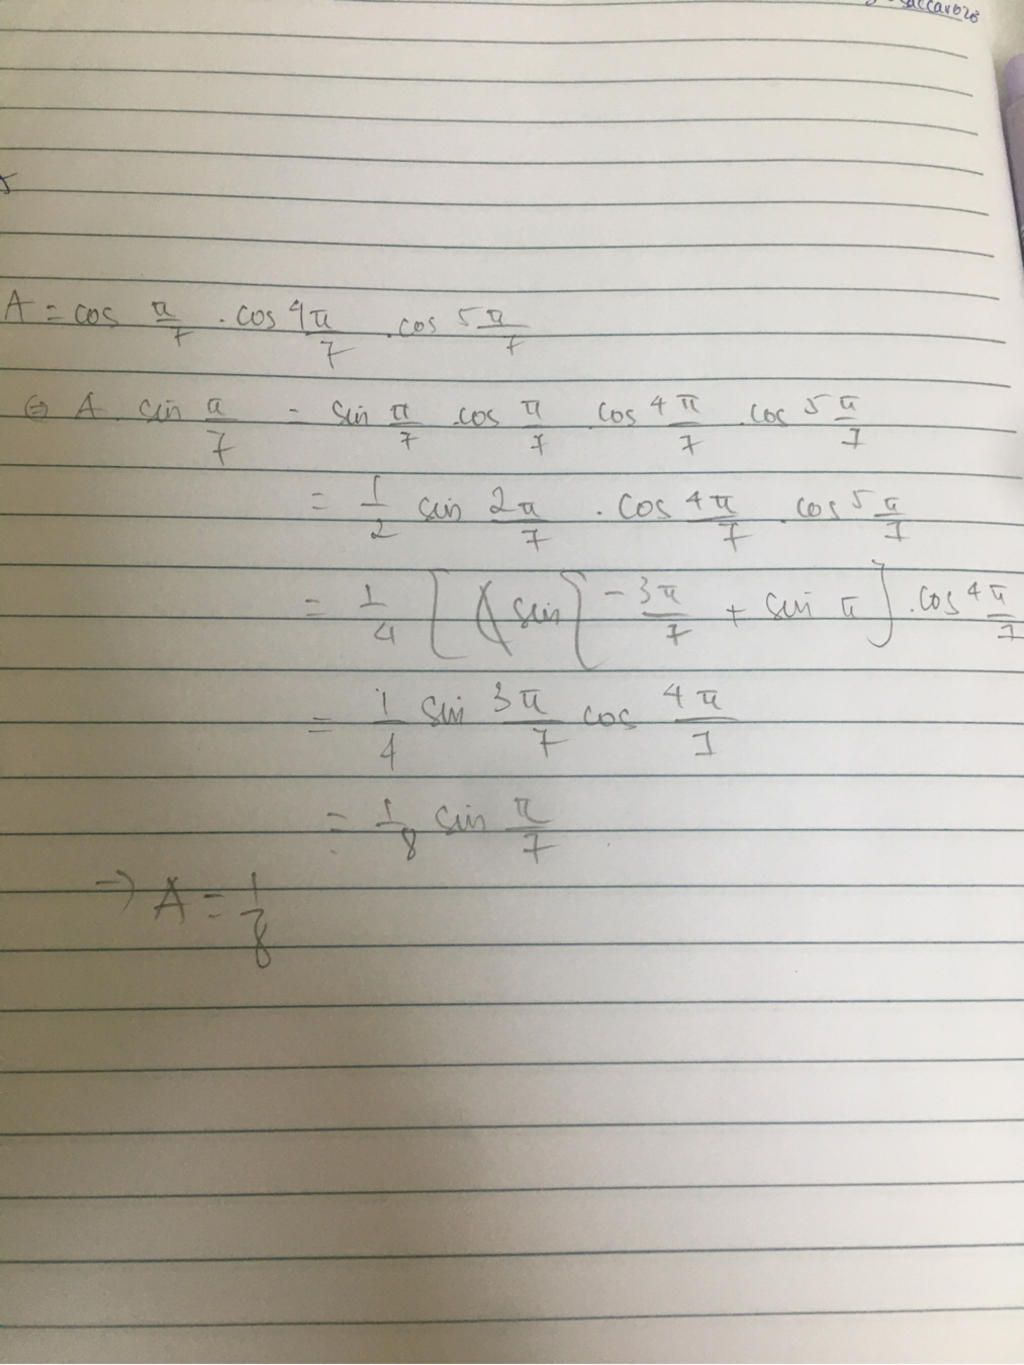 A = cos π/7 . cos 4π/7 . cos 5π/7
⇔ A . sin π/7 = sin π/7 . cos π/7 . cos 4π/7 . cos 5π/7
= 1/2 sin 2π/7 . cos 4π/7 . cos 5π/7
= 1/4 [ ( sin ( -3π/7 + sin π ] . cos 4π/7
= 1/4 sin 3π/7 cos 4π/7
= 1/8 sin π/7
→ A = 1/8